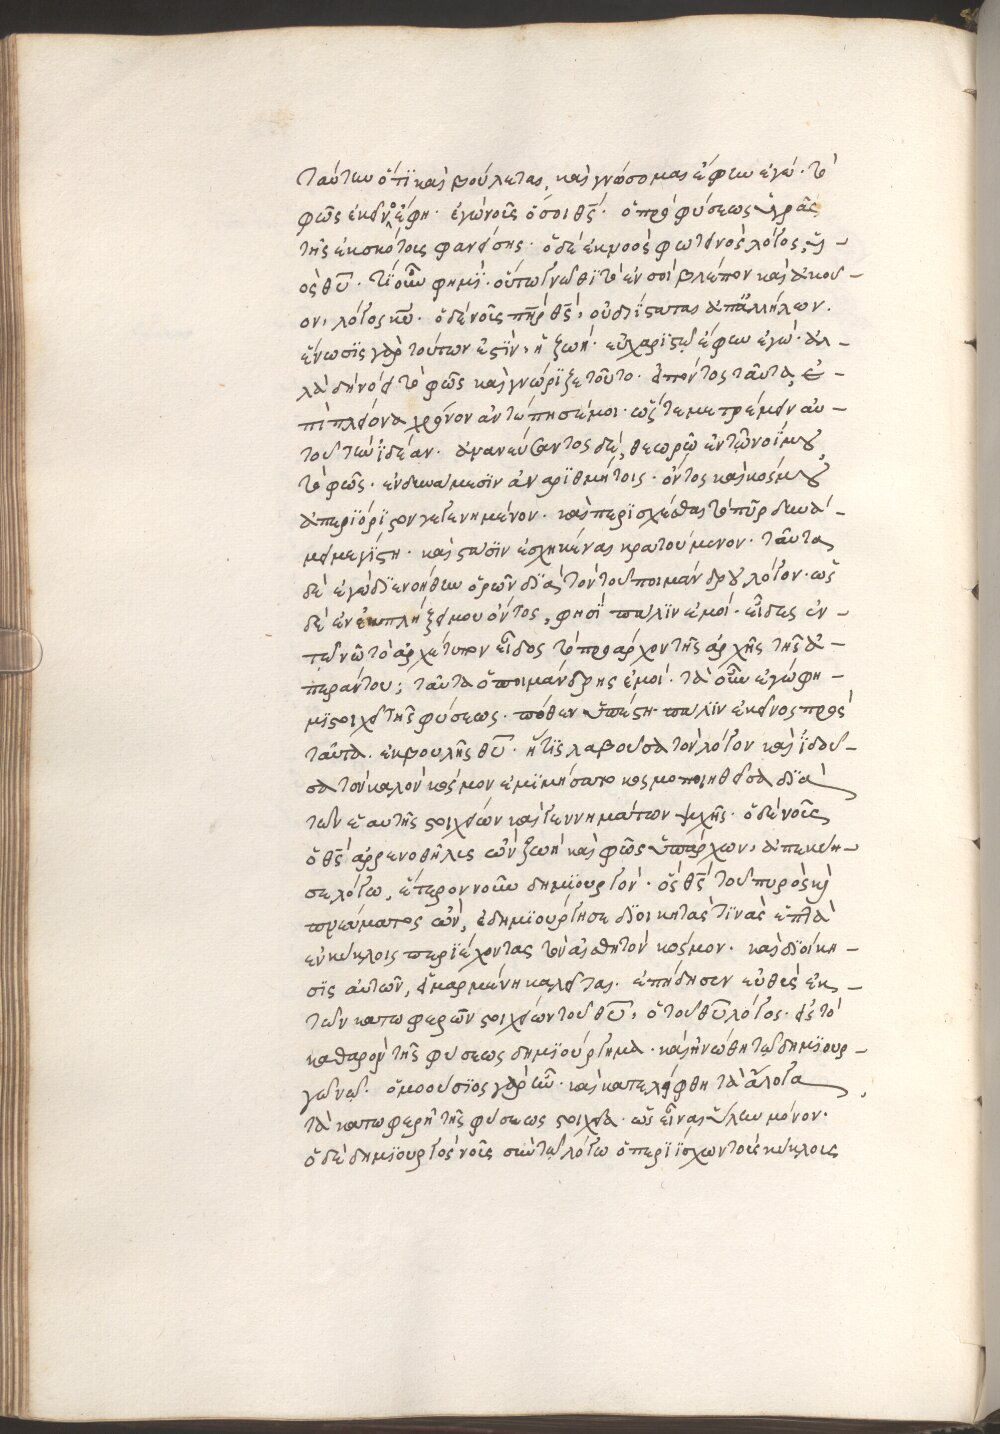 ταύτην ὅ τι καὶ βούλεται, καὶ γνώσομαι ἔφην ἐγώ· τὸ
φῶς ἐκεῖνο ἔφη· ἐγὼ νοῦς ὁ σὸς θς̄· ὁ πρὸ φύσεως ὑγρᾶς
τῆς ἐκ σκότους φανείσης· ὁ δὲ ἐκ νοὸς φωτεινὸς λόγος, ὑ-
ὸς θῡ· τί οὖν φημί· οὕτω γνῶθι τὸ ἐν σοὶ βλέπον καὶ ἀκοῦ-
ον, λόγος κῡ· ὁ δὲ νοῦς πη̄ρ θς̄, οὐ διΐστανται ἀπ' ἀλλήλων·
ἕνωσις γὰρ τούτων ἐστὶν, ἡ ζωή· εὐχαριστῶ ἔφην ἐγώ· ἀλ-
λὰ δὴ νόει τὸ φῶς καὶ γνώριζε τοῦτο· εἰπόντος ταῦτα, ἐ-
πὶ πλείονα χρόνον ἀντώπησέ μοι· ὥστε με τρέμειν αὐ-
τοῦ τὴν ἰδέαν· ἀνανεύσαντος δὲ, θεωρῶ ἐν τῷ νοΐ μου
τὸ φῶς· ἐν δυνάμεσιν ἀναριθμήτοις· ὄντος καὶ κόσμου
ἀπεριόριστον γεγενημένον· καὶ περισχέσθαι τὸ πῦρ δυνά-
μει μεγίστῃ· καὶ στάσιν ἐσχηκέναι κρατούμενον· ταῦτα
δὲ ἐγὼ διενοήθην ὁρῶν διὰ τὸν τοῦ ποιμάνδρου λόγον· ὡς
δὲ ἐν ἐκπλήξει μου ὄντος, φησὶ πάλιν ἐμοί· εἶδες ἐν
τῷ νῷ τὸ ἀρχέτυπον εἶδος τὸ προάρχον τῆς ἀρχῆς τῆς ἀ-
περάντου; ταῦτα ὁ ποιμάνδρης ἐμοί· τὰ οὖν ἐγώ φη-
μι στοιχεῖα τῆς φύσεως· πόθεν ὑπέστη πάλιν ἐκεῖνος πρὸς
ταῦτα· ἐκ βουλῆς θῡ· ἥτις λαβοῦσα τὸν λόγον καὶ ἰδοῦ-
σα τὸν καλὸν κόσμον ἐμιμήσατο κοσμοποιηθεῖσα διὰ
τῶν ἑαυτῆς στοιχείων καὶ γεννημάτων ψυχῆς· ὁ δὲ νοῦς
ὁ θς̄ ἀρρενόθηλυς ὢν ζωὴ καὶ φῶς ὑπάρχων, ἀπεκύη-
σε λόγω, ἕτερον νοῦν δημιουργόν· ὃς θς̄ τοῦ πυρὸς κὶ
πνεύματος ὢν, ἐδημιούργησε διοικητάς τινας ἑπτὰ
ἐν κύκλοις περιέχοντας τὸν αἰσθητὸν κόσμον· καὶ διοίκη-
σις αὐτῶν, εἱμαρμένη καλεῖται· ἐπήδησεν εὐθὺς ἐκ
τῶν κατωφερῶν στοιχείων τοῦ θῡ, ὁ τοῦ θῡ λόγος· εἰς τὸ
καθαρὸν τῆς φύσεως δημιούργημα· καὶ ἡνώθη τῷ δημιουρ-
γῷ νῷ· ὁμοούσιος γὰρ ἦν· καὶ κατελείφθη τὰ ἄλογα
τὰ κατωφερῆ τῆς φύσεως στοιχεῖα· ὡς εἶναι ὕλην μόνον·
ὁ δὲ δημιουργὸς νοῦς σὺν τῷ λόγω ὁ περιίσχων τοὺς κύκλους